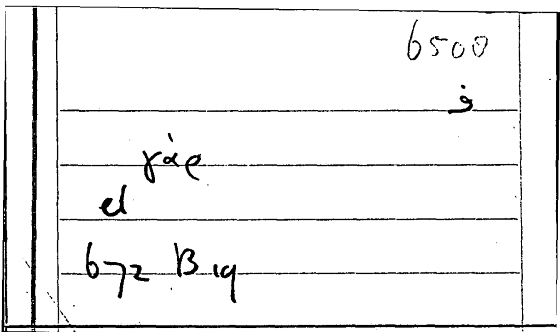 6500
γάρ
el
672 B 19